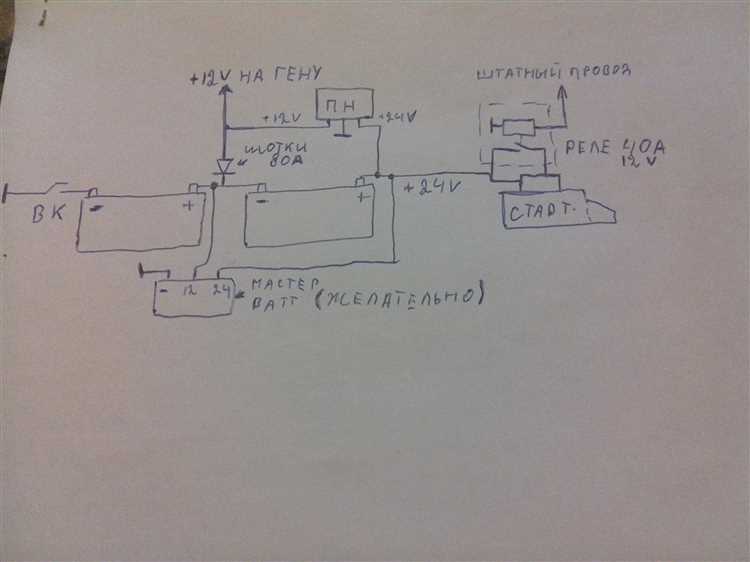 +12V НА ГЕНУ
ШТАТНЫЙ ПРОВОД
ПН
+12V
+24V
ШОТКИ
80А
РЕЛЕ 40А
12V
ВК
-
+
-
+
+24V
СТАРТ.
- 12 24
МАСТЕР
ВАТТ (ЖЕЛАТЕЛЬНО)